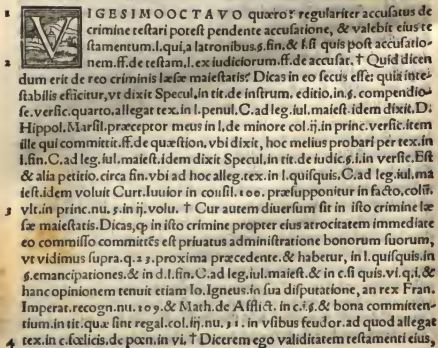 1 VIGESIMOOCTAVO quæro? regulariter accusatus de
crimine testari potest pendente accusatione, & valebit eius te
stamentum.l.qui,a latronibus.§.fin.& l.si quis post accusatio-
2 nem.ff.de testam.l.ex iudiciorum.ff.de accusat. † Quid dicen
dum erit de reo criminis læsæ maiestatis? Dicas in eo secus esse: quia intestabilis
efficitur,vt dixit Specul,in tit.de instrum. editio.in.§. compendio-
se.versic.quarto,allegat tex.in l.penul.C.ad leg.iul.maiest.idem dixit.D.
Hippol.Marsil.præceptor meus in l.de minore col.ij.in princ.versic.item
ille qui committit.ff.de quæstion. vbi dixit, hoc melius probari per tex.in
l.fin.C.ad leg.iul.maiest.idem dixit Specul.in tit.de iudic.§.i.in versic.Est
& alia petitio.circa fin.vbi ad hoc alleg.tex.in l.quisquis.C.ad leg.iul.ma
iest.idem voluit Curt.Iuuior in consil.100. præsupponitur in facto.colũ.
3 vlt.in princ.nu.5.in ij.volu. † Cur autem diuersum sit in isto crimine læ
sæ maiestatis.Dicas,ꝙ in isto crimine propter eius atrocitatem immediate
eo commisso committẽs est priuatus administratione bonorum suorum,
vt vidimus supra.q.23.proxima præcedente.& habetur, in l.quisquis.in
§.emancipationes.& in d.l.fin.C.ad leg.iul.maiest.& in c.si quis.vi.q.i.&
hanc opinionem tenuit etiam Io.Igneus.in sua disputatione, an rex Fran.
Imperat.recogn.nu.109.& Math.de Afflict. in c.i.§.& bona committen-
tium.in tit.quæ sint regal.col.iij.nu.31.in vsibus feudor.ad quod allegat
4 tex.in c.fœlicis.de pœn.in vi. † Dicerem ego validitatem testamenti eius,